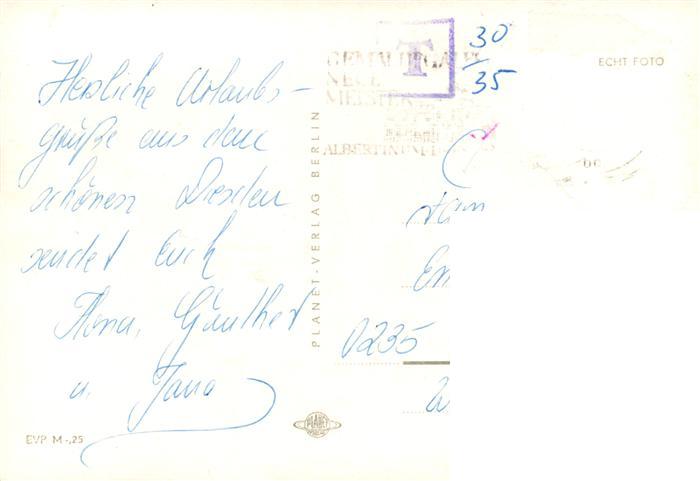 Herzliche Urlaubs-
grüße aus dem
schönen Dresden
sendet Euch
Ilona, Günther
u. Jana
EVP M -,25
PLANET-VERLAG BERLIN
PLANET
GEMÄLDEGALERIE
NEUE
MEISTER
ALBERTINUM
T
30
35
ECHT FOTO
Fam
0235